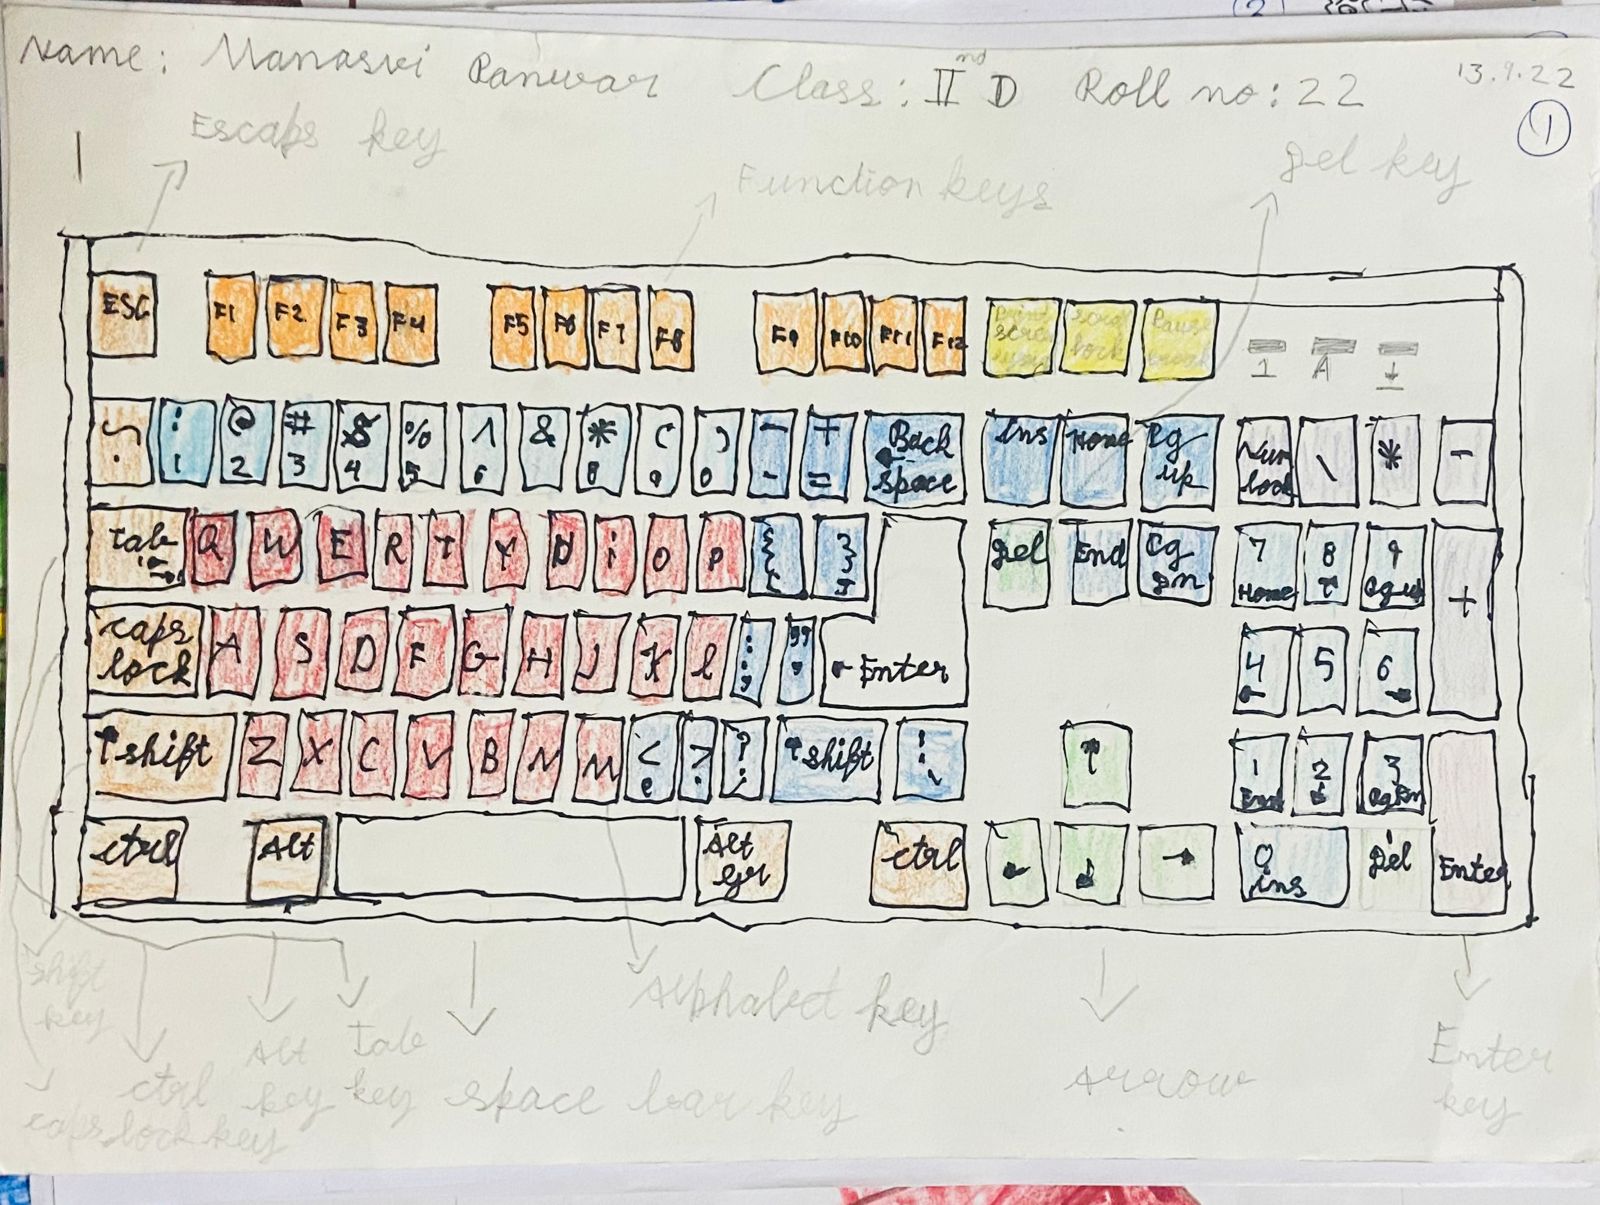 Name: Manasvi Panwar Class: IInd D Roll no: 22 13.9.22
1
Escaps key
Function keys
Del key
ESC F1 F2 F3 F4 F5 F6 F7 F8 F9 F10 F11 F12 Scro lock Pause
1 A ↓
~ ! 1 @ 2 # 3 $ 4 % 5 ^ 6 & * 8 ( 9 ) 0 - - + = Back ← Space Ins Home Pg up Num lock \ * -
Tab Q W E R T Y U i O P { [ } ] Del End Pg Dn 7 Home 8 ↑ 9 Pg up +
caps lock A S D F G H J K l : ; " , ← Enter 4 ← 5 6 →
↑ shift Z X C V B N M < > ? ↑ shift ↑ 1 End 2 ↓ 3 Pg Dn
ctrl Alt Alt Gr ctrl ← ↓ → 0 ins Del Enter
shift key
caps lock key
ctrl key
Alt key
Tab key
space bar key
Alphabet key
Arrow
Enter key